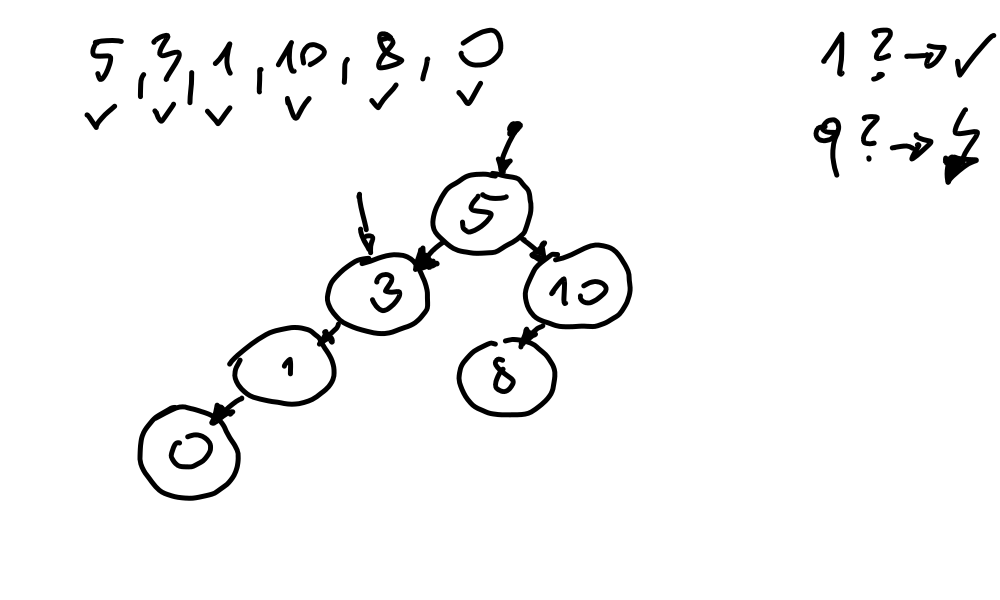 5, 3, 1, 10, 8, 0
✓ ✓ ✓ ✓ ✓ ✓
1 ? → ✓
9 ? → ↯
5
3 10
1 8
0